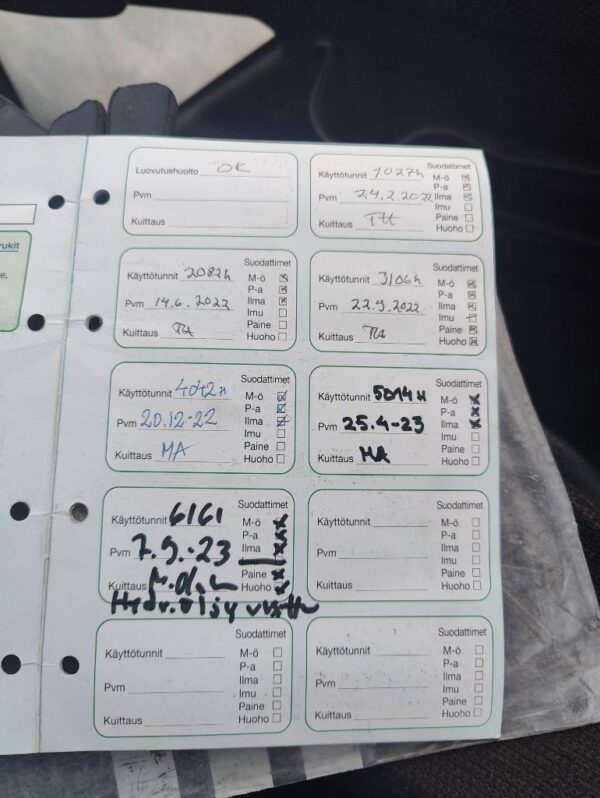 rukit
e,
Luovutushuolto OK
Pvm
Kuittaus
Suodattimet
Käyttötunnit 1027h M-ö
P-a
Pvm 24.2.2022 Ilma
Imu
Kuittaus TH Paine
Huoho
Suodattimet
Käyttötunnit 2082h M-ö
P-a
Pvm 14.6.2022 Ilma
Imu
Kuittaus TH Paine
Huoho
Suodattimet
Käyttötunnit 3106h M-ö
P-a
Pvm 22.9.2022 Ilma
Imu
Kuittaus Paine
Huoho
Suodattimet
Käyttötunnit 4042H M-ö
P-a
Pvm 20.12-22 Ilma
Imu
Kuittaus MA Paine
Huoho
Suodattimet
Käyttötunnit 5014H M-ö
P-a
Pvm 25.4-23 Ilma
Imu
Kuittaus MA Paine
Huoho
Suodattimet
Käyttötunnit 6161 M-ö
P-a
Pvm 7.9.-23 Ilma
Paine
Kuittaus Huoho
Hydr.öljy
Suodattimet
Käyttötunnit M-ö
P-a
Pvm Ilma
Imu
Kuittaus Paine
Huoho
Suodattimet
Käyttötunnit M-ö
P-a
Pvm Ilma
Imu
Kuittaus Paine
Huoho
Suodattimet
Käyttötunnit M-ö
P-a
Pvm Ilma
Imu
Kuittaus Paine
Huoho